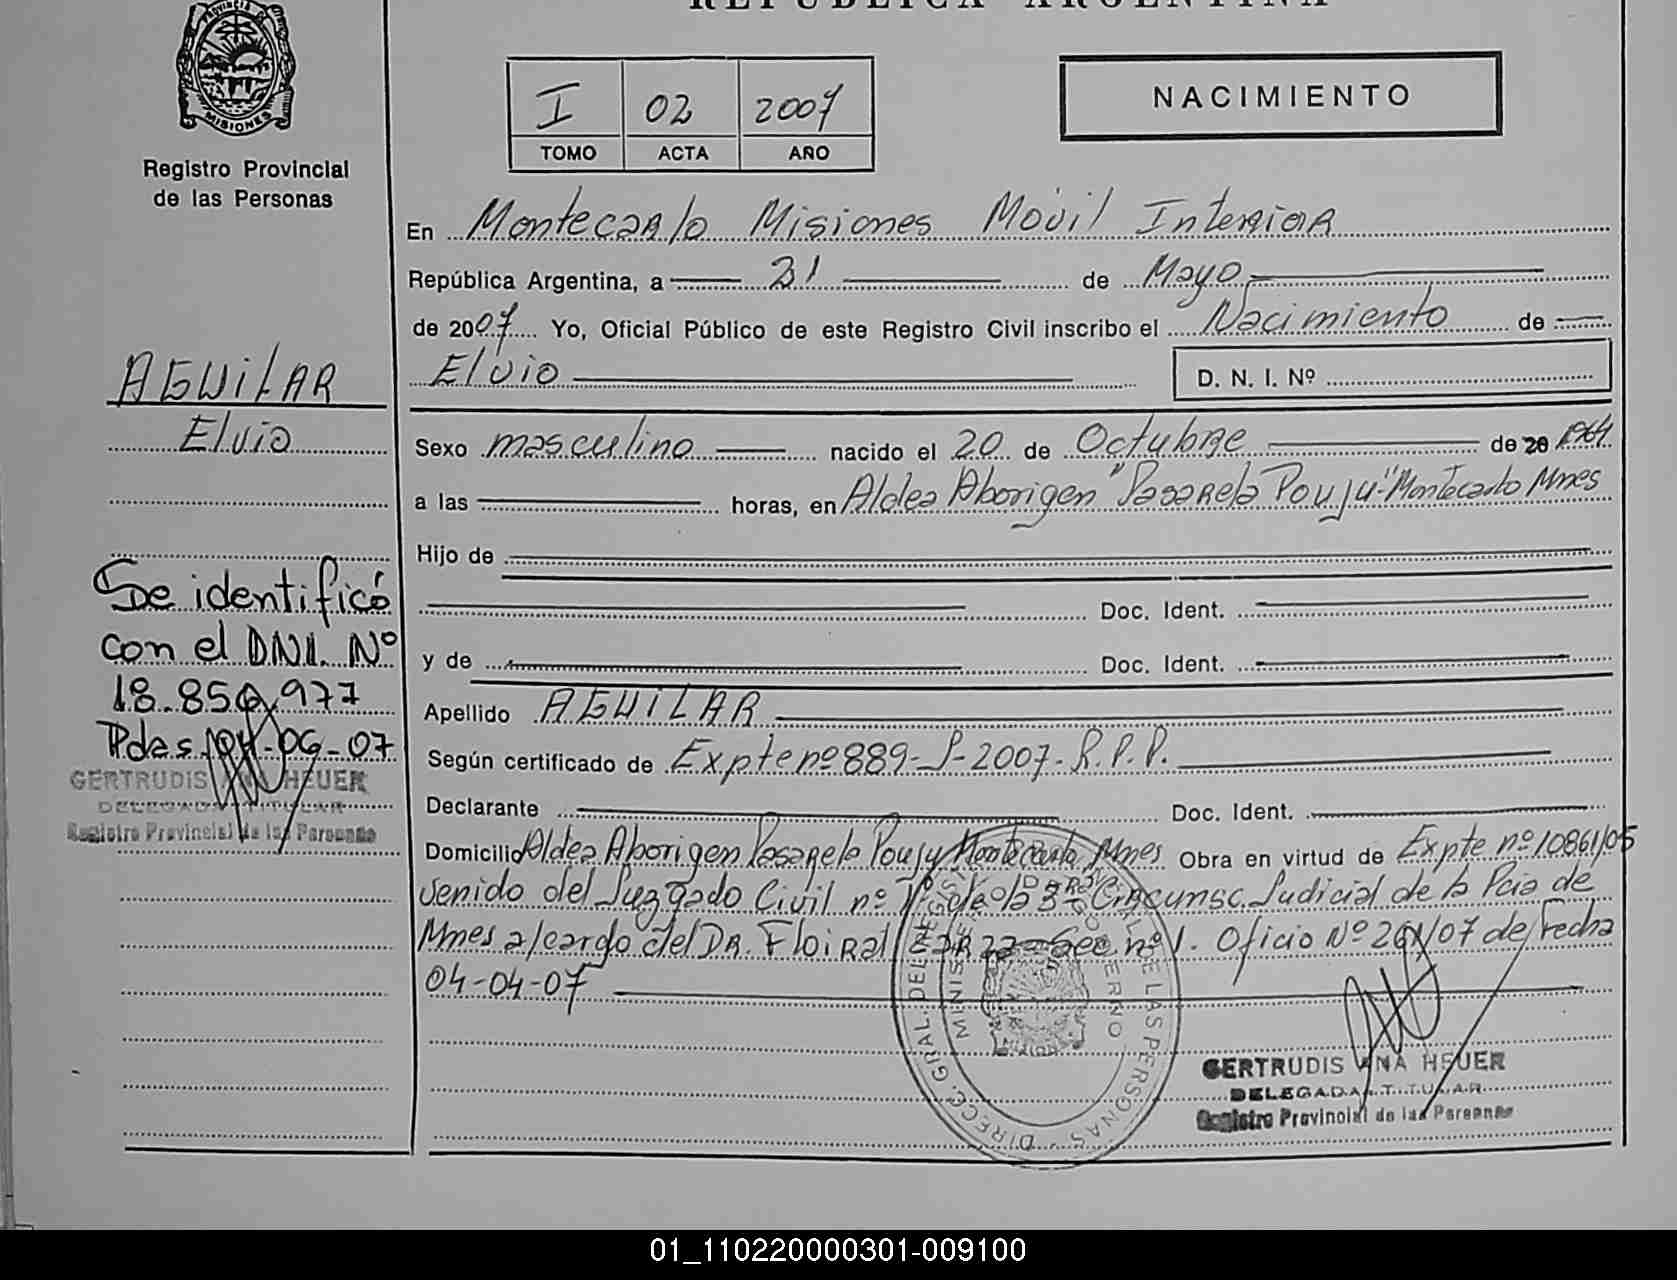 REPUBLICA ARGENTINA
PROVINCIA DE
MISIONES
Registro Provincial
de las Personas
I 02 2007
TOMO ACTA AÑO
NACIMIENTO
En Montecarlo Misiones Móvil Interior
República Argentina, a 31 de Mayo
de 2007 Yo, Oficial Público de este Registro Civil inscribo el Nacimiento de
Elvio
D. N. I. Nº
AGUILAR
Elvio
Sexo masculino nacido el 20 de Octubre de 20 1964
a las horas, en Aldea Aborigen "Pasarela Pouju" Montecarlo Mnes
Hijo de
Doc. Ident.
y de Doc. Ident.
Apellido AGUILAR
Según certificado de Expte nº 889-P-2007-R.P.P.
Declarante Doc. Ident.
Domicilio Aldea Aborigen Pasarela Pouju Montecarlo Mnes Obra en virtud de Expte nº 10861/05
venido del Juzgado Civil nº 1º de la 3ª Circunsc. Judicial de la Pcia de
Mnes a/cargo del DR. Sec nº 1. Oficio Nº /07 de Fecha
04-04-07
Se identificó
con el DNI. Nº
18.850.977
Pdas. 04-06-07
GERTRUDIS ANA HEUER
DELEGADA TITULAR
Registro Provincial de las Personas
DIRECC. GRAL. DEL REGISTRO PROVINCIAL DE LAS PERSONAS
MINISTERIO DE GOBIERNO
GERTRUDIS ANA HEUER
DELEGADA TITULAR
Registro Provincial de las Personas
01_110220000301-009100